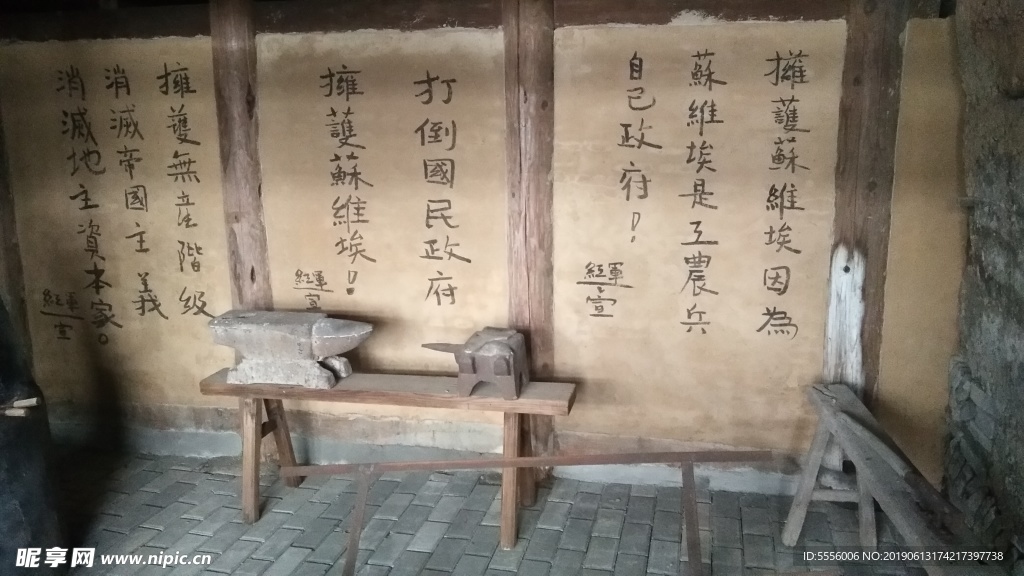 擁護蘇維埃因為
蘇維埃是工農兵
自己政府！
紅軍宣
打倒國民政府
擁護蘇維埃！
紅軍宣
擁護無产階级
消滅帝國主義
消滅地主資本家。
紅軍宣
昵享网 www.nipic.cn
ID:5556006 NO:20190613174217397738